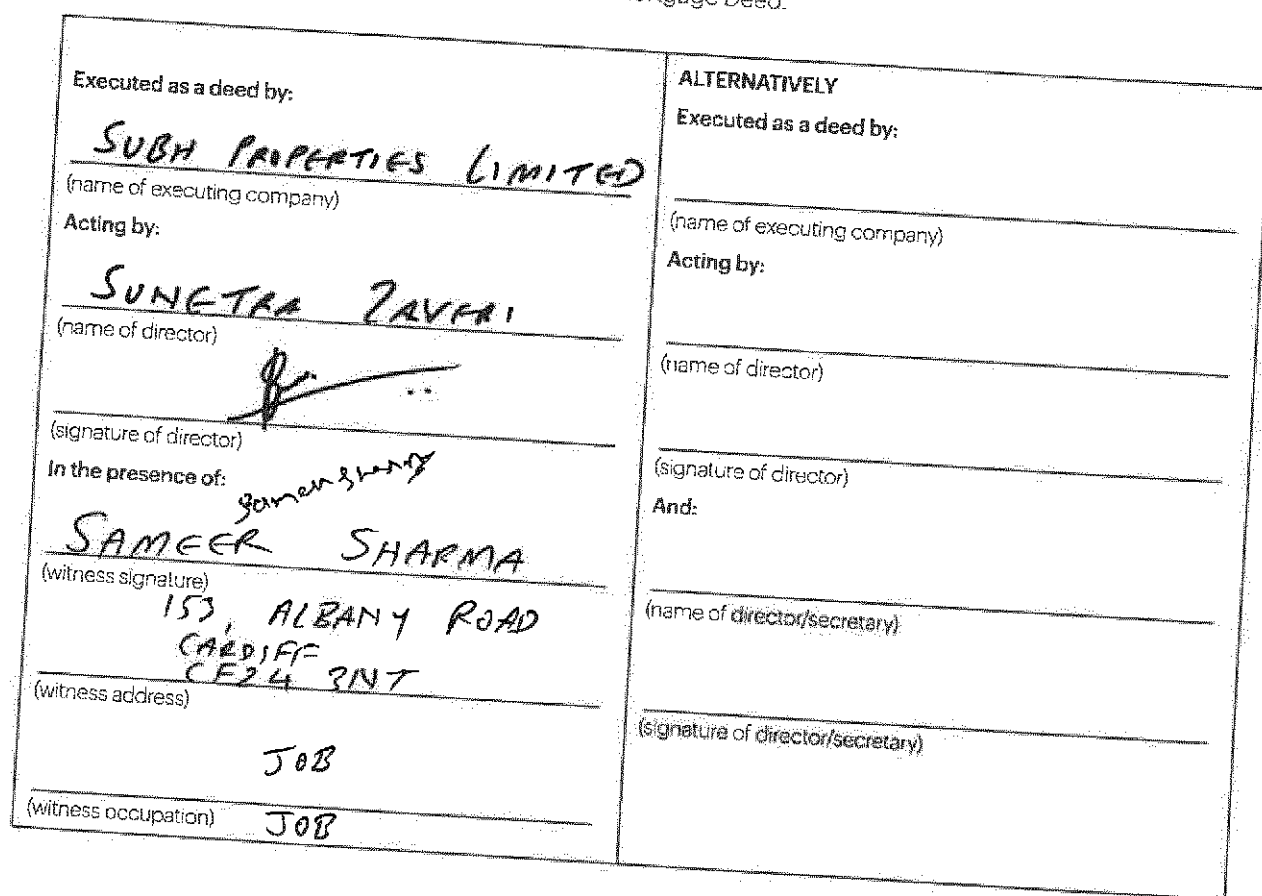 Mortgage Deed.
Executed as a deed by:
SUBH PROPERTIES LIMITED
(name of executing company)
Acting by:
SUNETRA ZAVERI
(name of director)
(signature of director)
In the presence of:
SAMEER SHARMA
(witness signature)
153, ALBANY ROAD
CARDIFF
CF24 3NT
(witness address)
JOB
(witness occupation) JOB
ALTERNATIVELY
Executed as a deed by:
(name of executing company)
Acting by:
(name of director)
(signature of director)
And:
(name of director/secretary)
(signature of director/secretary)